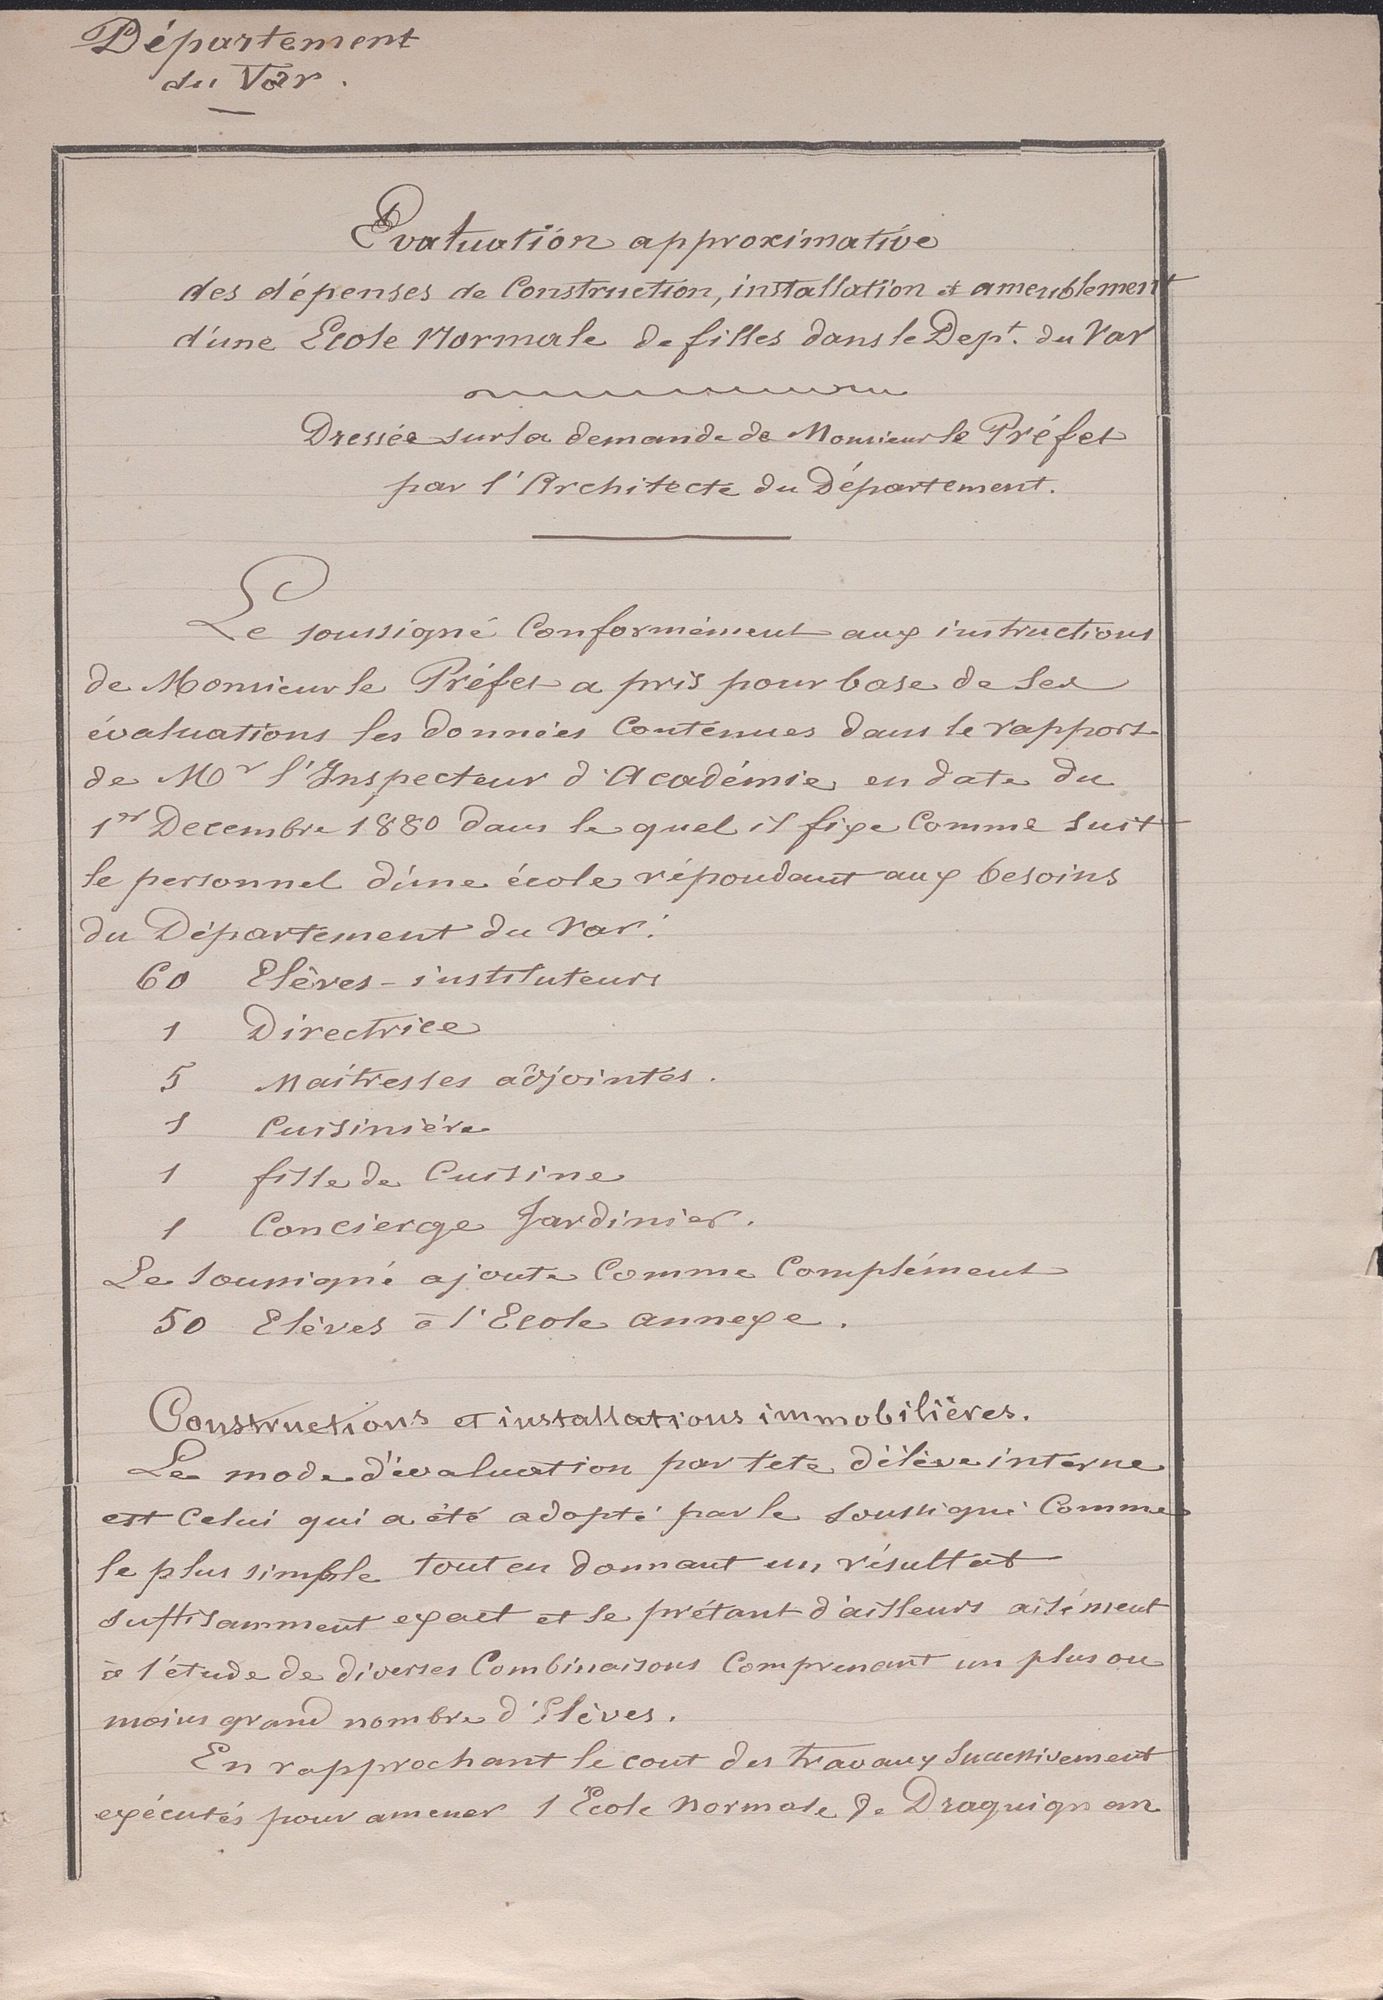 Département
du Var.
Evaluation approximative
des dépenses de Construction, installation et ameublement
d'une Ecole Normale de filles dans le Dept. du Var
Dressée sur la demande de Monsieur le Préfet
par l'Architecte du Département.
Le soussigné Conformément aux instructions
de Monsieur le Préfet a pris pour base de ses
évaluations les données Contenues dans le rapport
de Mr l'Inspecteur d'Académie en date du
1er Decembre 1880 dans le quel il fixe Comme suit
le personnel d'une école répondant aux besoins
du Département du Var:
60 Elèves-instituteurs
1 Directrice
5 Maitresses adjointes.
1 Cuisinière
1 fille de Cuisine
1 Concierge Jardinier.
Le soussigné ajoute Comme Complément
50 Elèves à l'Ecole annexe.
Constructions et installations immobilières.
Le mode d'évaluation par tête d'élève interne
est Celui qui a été adopté par le soussigné Comme
le plus simple tout en donnant un résultat
suffisamment exact et se prétant d'ailleurs aisément
à l'étude de diverses Combinaisons Comprenant un plus ou
moins grand nombre d'Elèves.
En rapprochant le cout des travaux successivement
exécutés pour amener l'Ecole normale de Draguignan